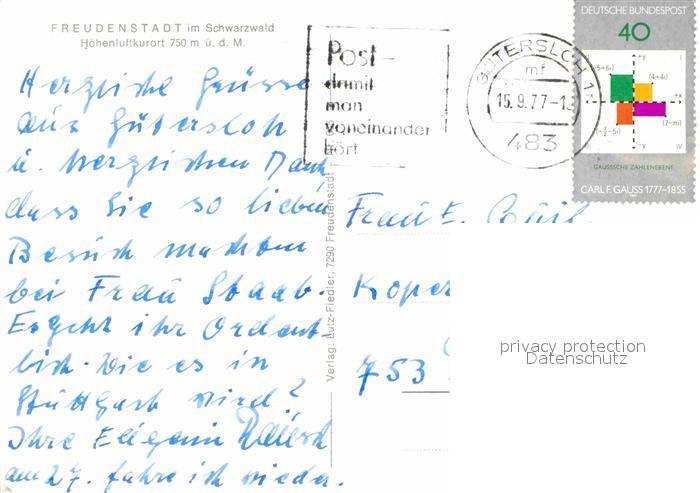 FREUDENSTADT im Schwarzwald
Höhenluftkurort 750 m ü. d. M.
Herzliche Grüsse
aus Gütersloh
u. herzlichen Dank
dass Sie so lieben
Besuch machten
bei Frau Staab.
Es geht ihr Ordent-
lich. Wie es in
Stuttgart wird?
Ihre
am 27. fahre ich wieder.
Verlag: Lutz-Fiedler, 7290 Freudenstadt
Post -
damit
man
voneinander
hört
GÜTERSLOH 1
mf
15.9.77-1
483
DEUTSCHE BUNDESPOST
40
(-5+6i)
+y
(4+4i)
+x
(7-mi)
-y
GAUSSSCHE ZAHLENEBENE
CARL F. GAUSS 1777-1855
Frau E.
Koper
753
privacy protection
Datenschutz